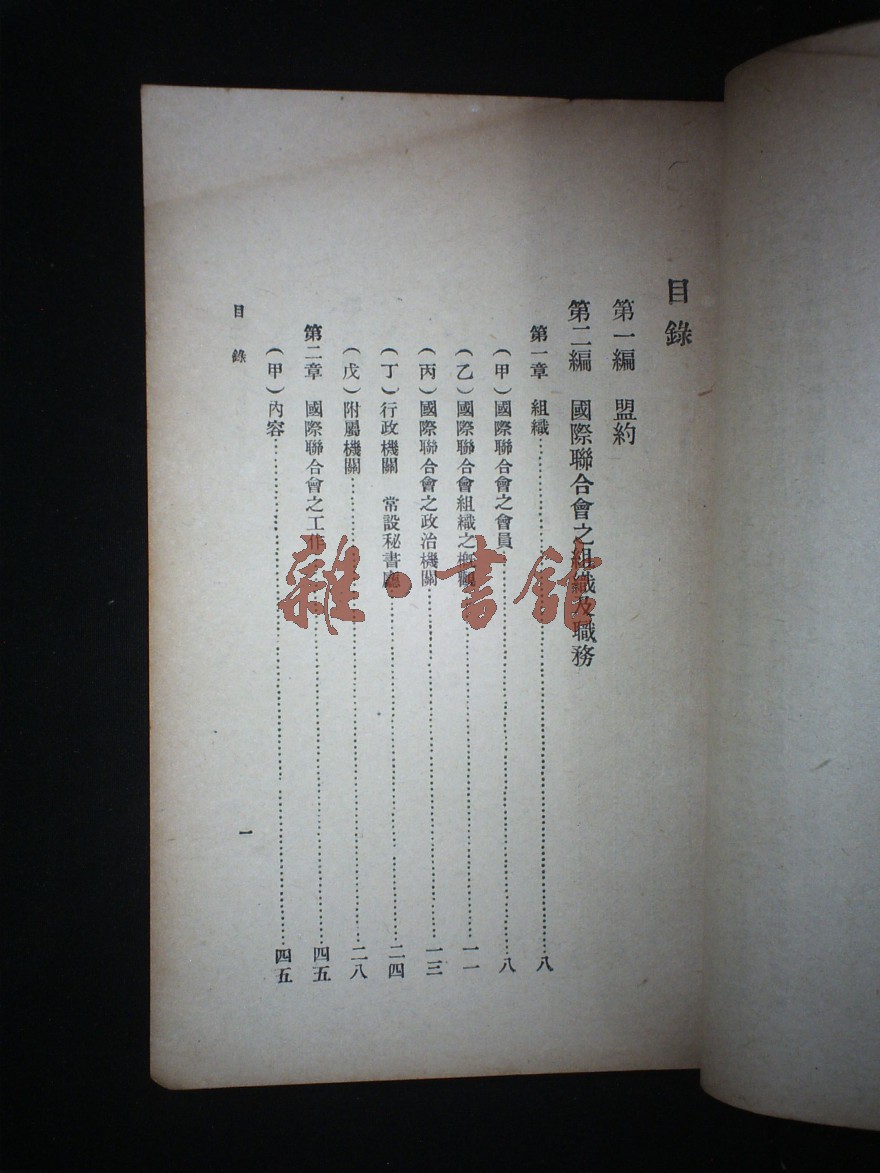 目錄
第一編　盟約
第二編　國際聯合會之組織及職務
第一章　組織……八
（甲）國際聯合會之會員……八
（乙）國際聯合會組織之概觀……一一
（丙）國際聯合會之政治機關……一三
（丁）行政機關　常設秘書廳……二四
（戊）附屬機關……二八
第二章　國際聯合會之工作……四五
（甲）內容……四五
目錄
一
雜·書館